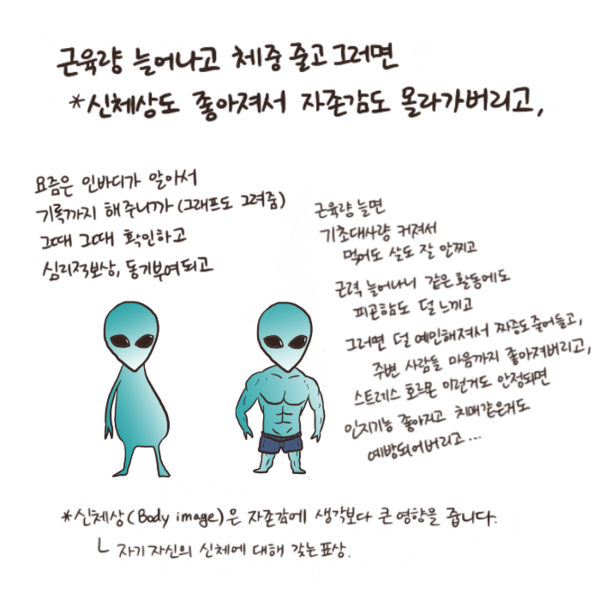 근육량 늘어나고 체중 줄고 그러면
*신체상도 좋아져서 자존감도 올라가버리고,
요즘은 인바디가 알아서
기록까지 해주니까 (그래프도 그려줌)
그때 그때 확인하고
심리적보상, 동기부여되고
근육량 늘면
기초대사량 커져서
먹어도 살도 잘 안찌고
근력 늘어나니 같은 활동에도
피곤함도 덜 느끼고
그러면 덜 예민해져서 짜증도 줄어들고,
주변 사람들 마음까지 좋아져버리고,
스트레스 호르몬 이런거도 안정되면
인지기능 좋아지고 치매같은거도
예방되어버리고...
*신체상(Body image)은 자존감에 생각보다 큰 영향을 줍니다.
└ 자기자신의 신체에 대해 갖는 표상.